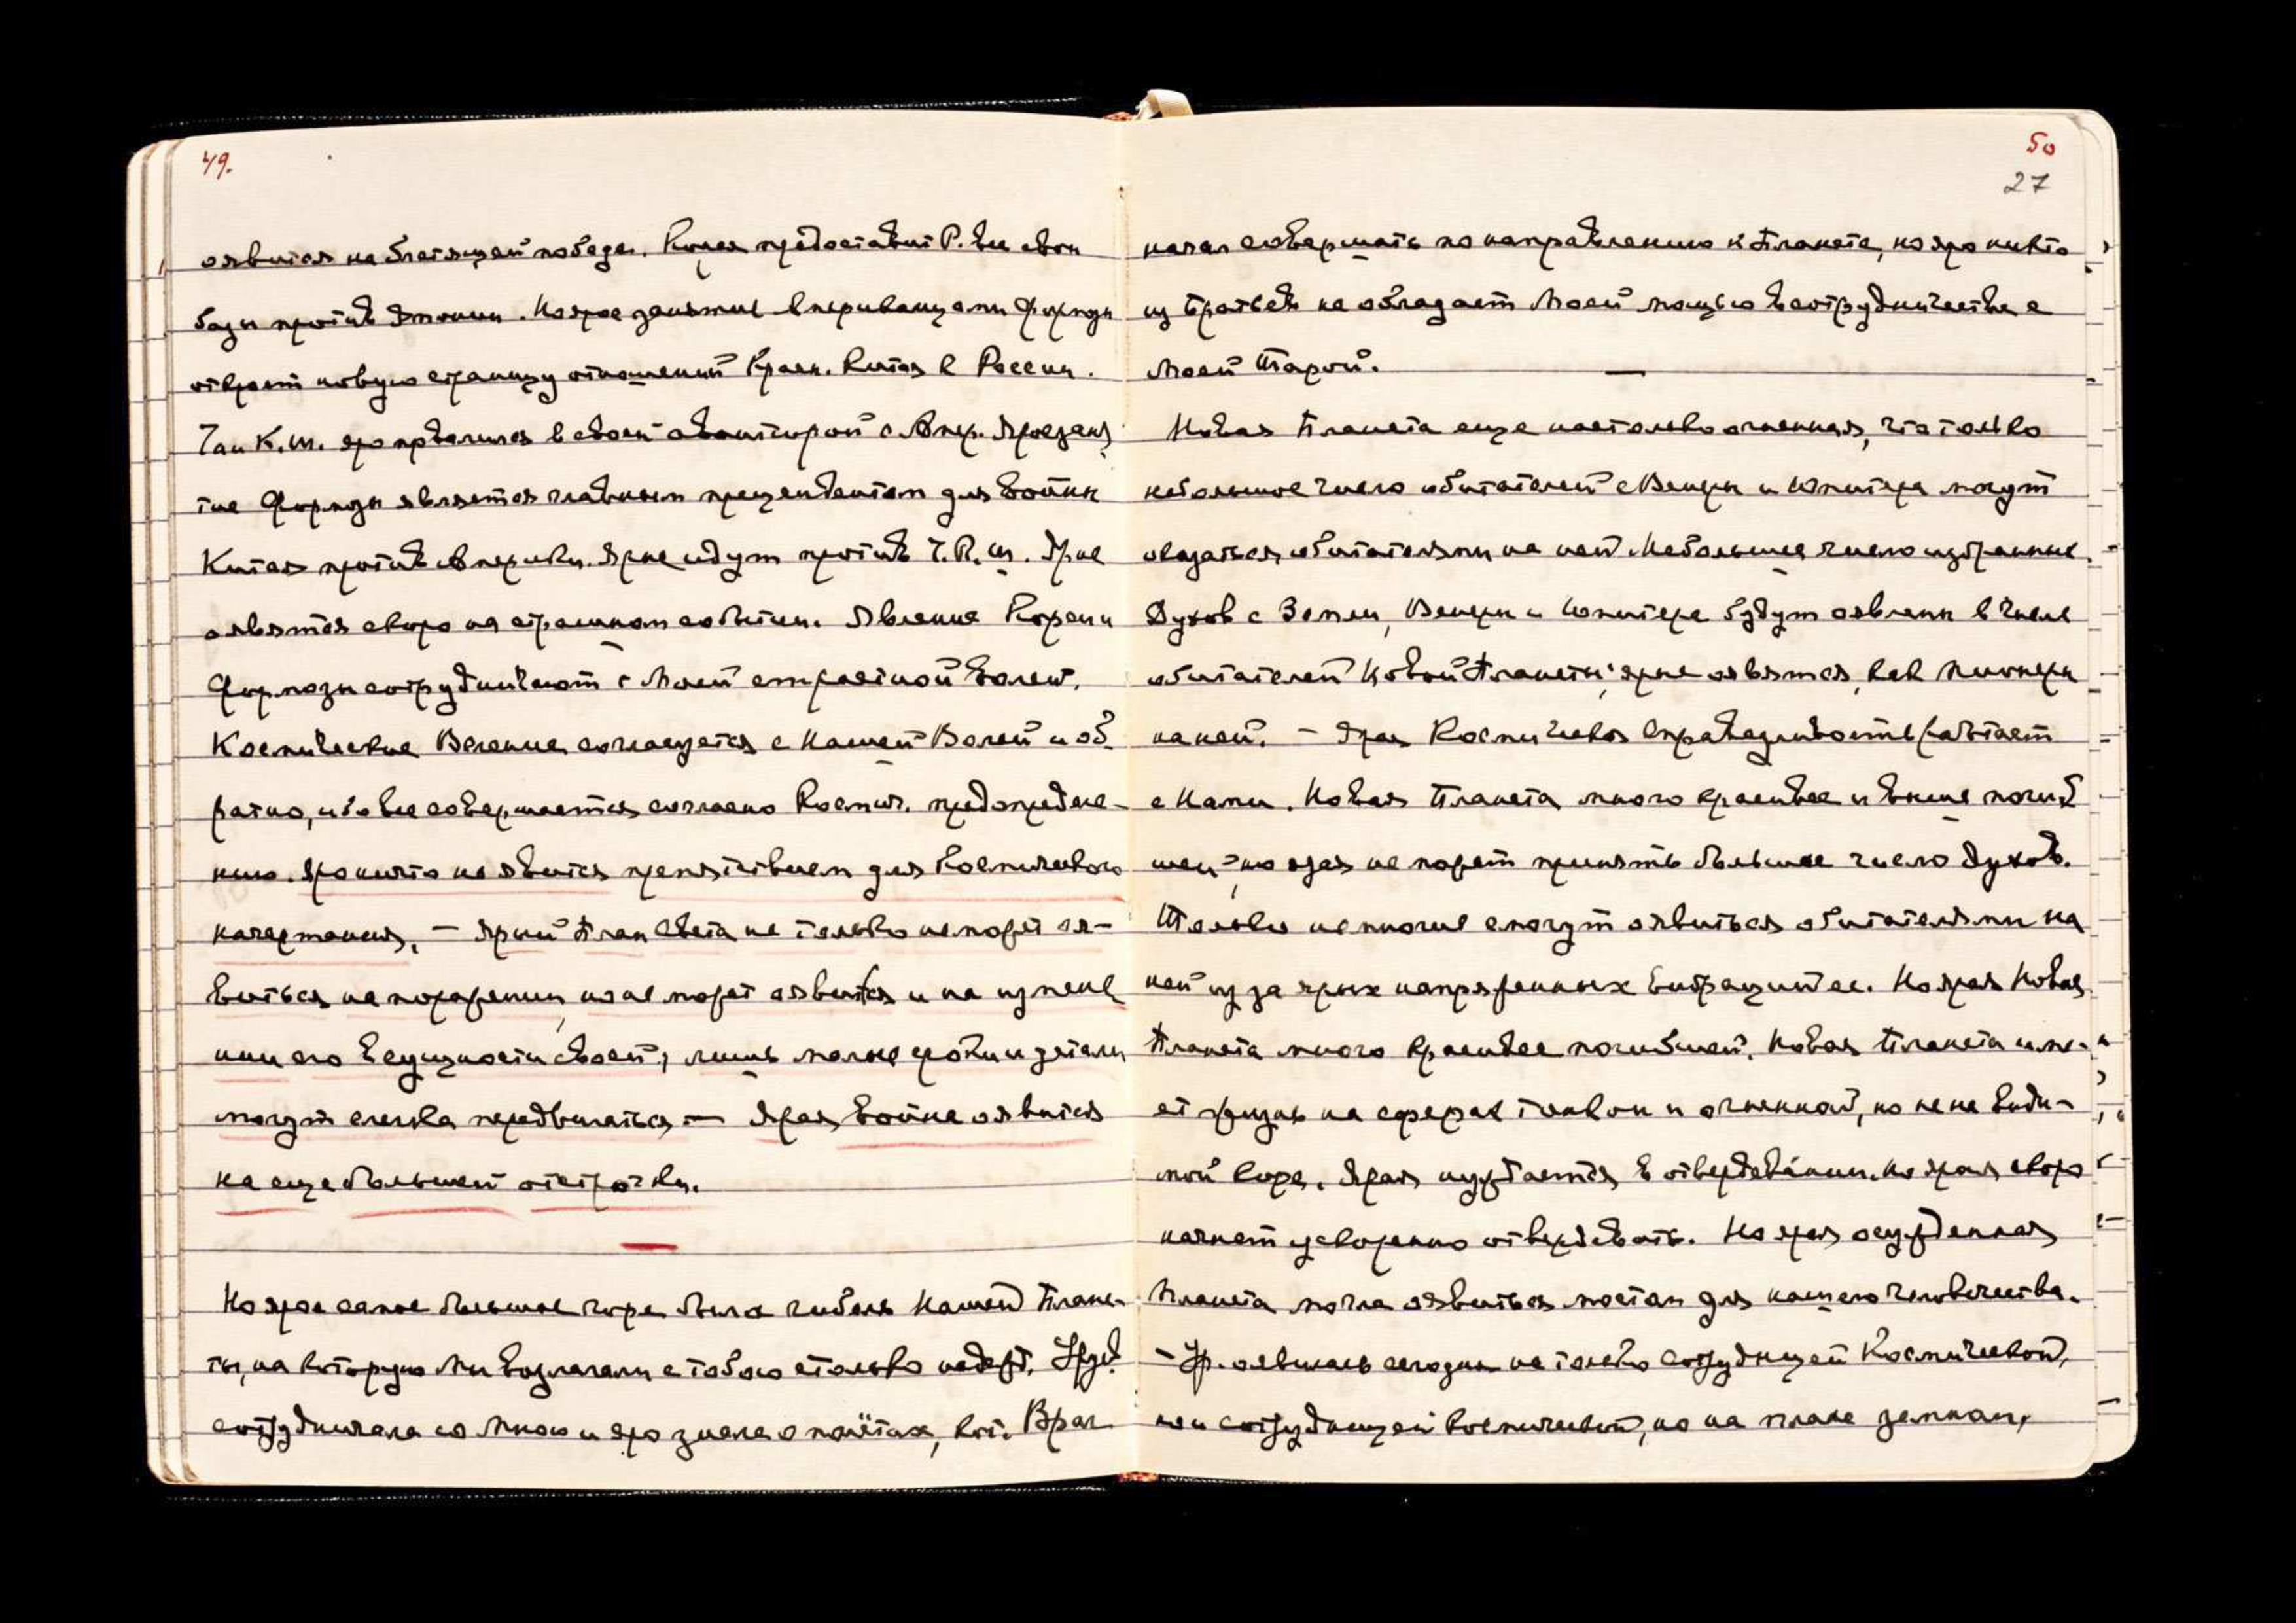 49.
оявится на блестящей победе. Корея предоставит Р. все свои
базы против Японии. Но ярое занятие американцами Формозы
откроет новую страницу отношений Красн. Китая к России.
Чан К. Ш. яро провалился в своей авантюрой с Амер. Ярое заня-
тие Формозы является главным прецендентом для войны
Китая против Америки. Ярые идут против Ч. К. Ш. Ярые
оявятся скоро на страшном событии. Явление Кореи и
Формозы сотрудничают с Моей страстной Волей.
Космические Веления согласуются с Нашей Волей и об-
ратно, ибо все совершается согласно Космич. предопределе-
нию. Яро ничто не явится препятствием для Космического
начертания. — Ярый План Света не только не может оя-
виться на поражении, но не может оявиться и на измене-
нии его в сущности своей; лишь малые сроки и детали
могут слегка передвигаться — Ярая война оявится
на еще большей отсрочке.
Но ярое самое большое горе была гибель Нашей Плане-
ты, на которую Мы возлагали с тобою столько надежд. Ур.
сотрудничала со Мною и яро знала о полётах, кот. Враг
50
27
начал совершать по направлению к Планете, но яро никто
из Братьев не обладает Моей мощью в сотрудничестве с
Моей Тарой. —
Новая Планета еще настолько огненная, что только
небольшое число обитателей с Венеры и Юпитера могут
оказаться обитателями на ней. Небольшое число избранных
Духов с Земли, Венеры и Юпитера будут оявлены в числе
обитателей Новой Планеты; ярые оявятся, как пионеры
на ней. — Ярая Космическая Справедливость работает
с Нами. Новая Планета много красивее и выше погиб-
шей, но ярая не может принять большое число духов.
Только немногие смогут оявиться обитателями на
ней из за ярых напряженных вибраций ее. Но ярая Новая
Планета много красивее погибшей. Новая Планета име-
ет жизнь на сферах тонкой и огненной, но не на види-
мой коре. Ярая нуждается в отвердевании. Но ярая скоро
начнет ускоренно отвердевать. Но ярая осужденная
Планета могла оявиться мостом для нашего человечества.
— Ур. оявилась сегодня не только сотрудницей Космической,
или сотрудницей космической, но на плане земном,